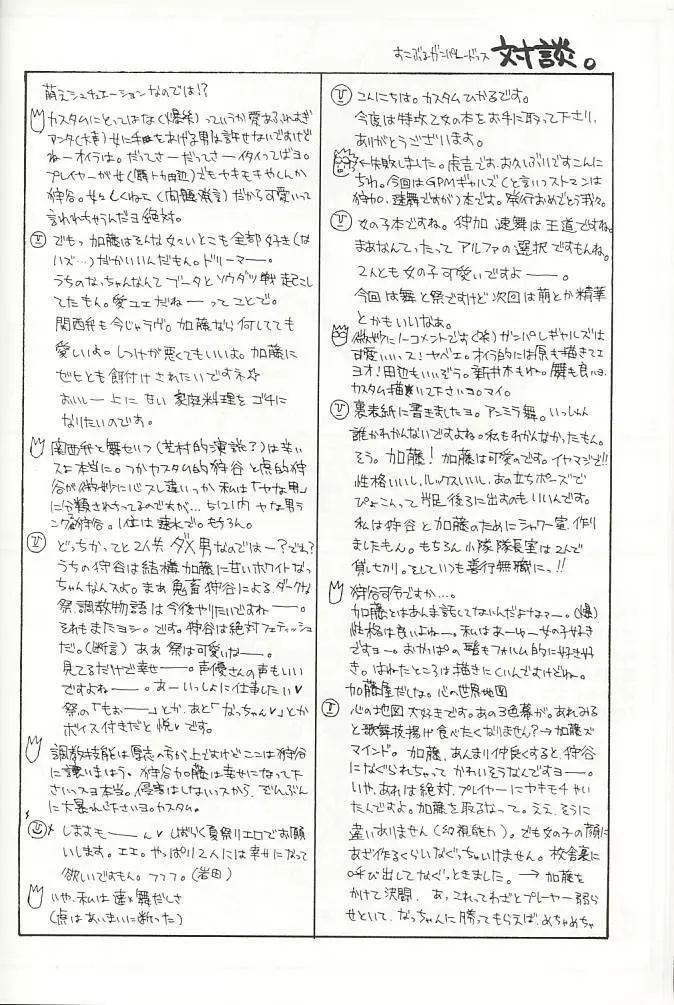 すこぶるガンパレードっス 対談。
こんにちは。カスタムひかるです。
今度は特攻乙女の本をお手に取って下さり、
ありがとうございます。
←失敗しました。虎吉です、お久しぶりですこんに
ちわ。今回はGPMギャルズ(と言いつつストマンは
狩加、速舞ですが)本です。発行おめでとう我々。
女の子本ですね。狩加 速舞は王道ですね。
まあなんてったって アルファの選択ですもんね。
2人とも女の子可愛いですよー——。
今回は舞と祭ですけど次回は萌とか精華
とかもいいなぁ。
微妙にノーコメントです(笑)ガンパレギャルズは
可愛いいっス!ヤベエ。オイラ的には原も描きてェ
ヨオ!田辺もいいぞう。新井木もね。瀬も良いヨ。
カスタム描いて下さいヨ。マイ。
裏表紙に書きましたヨ。アンミラ舞。いっしゅん
誰かわかんないですよね。私もわかんなかったもん。
そう。加藤!加藤は可愛のです。イヤマジで!!
性格いいし、ルックスいいし、あの立ちポーズで
ぴょこんって片足後ろに出すのもいいんです。
私は狩谷と加藤のためにシャワー室作り
ましたもん。もちろん小隊隊長室は2人で
貸し切り。そしていつも善行無職にっ!!
狩谷司令ですか…。
加藤とはあんま話してないんだよなァー。(爆)
性格は良いよねー。私はあーゆー女の子好き
ですヨー。おかっぱの髪もフォルム的に好き好
き。はねたところは描きにくいんですけどね。
加藤屋だしな。心の世界地図
心の地図 大好きです。あの3色幕が。あれみる
と歌舞伎揚げ食べたくなりません?→加藤ズ
マインド。 加藤、あんまり仲良くすると、狩谷
になぐられちゃって かわいそうなんですヨー——。
いや、あれは絶対、プレイヤーにヤキモチやい
たんですよ。加藤を取るなって。ええ、そうに
違いありません(幻視能力)。でも女の子の顔に
あざ作るくらいなぐっちゃいけません。校舎裏に
呼び出してなぐっときました。→加藤を
かけて決闘。 あ、これってわざとプレーヤー弱ら
せといて、なっちゃんに勝ってもらえば、めちゃめちゃ
萌えシチュエーションなのでは!?
カスタムにとってはなく(爆笑)っていうか愛あふれすぎ
アンタ(大声)女に手をあげる男は許せないですけど
ねーオイラは。だってさーだってさーイタイってばヨ。
プレイヤーが女()でもヤキモキやくんか
狩谷。女々しくねェ(問題発言)だから可愛いって
言われちゃうんだヨ絶対。
でもっ加藤はそんな女々しいとこも全部好き(な
ハズ…)だからいいんだもん。ドリーマー——。
うちのなっちゃんなんてブータとソウダツ戦 起こし
てたもん。愛ユエだねー——ってことで。
関西弁も今じゃラヴ。加藤なら何しても
愛しいよ。しつけが悪くてもいいよ。加藤に
ゼヒとも餌付けされたいですネ☆
おいしー上に甘い 家庭料理をゴチに
なりたいのです。
関西弁と舞せいつ(芝村的演説?)は辛いっ
スよ本当に。つかカスタム的狩谷と虎的狩
谷が微妙に心スレ違いっか 私は「ヤな男」
に分類されちってるのですが…。ちなみにヤな男ラ
ンク2位狩谷。1位は速水で。もちろん。
どっちかってと2人共、ダメ男なのではー?でれ?
うちの狩谷は結構加藤に甘いホワイトなっ
ちゃんなんスよ。まあ鬼畜狩谷による、ダークな
祭、調教物語は今後やりたいですねー——。
それもまたヨシ。です。狩谷は絶対フェティッシュ
だ。(断言) ああ 祭は可愛いねー——。
見てるだけで幸せー——。声優さんの声もいい
ですよねー——。あーいっしょに仕事したい♥
祭の「もぉー——」とか、あと「なっちゃん♥」とか
ボイス付きだと悦♥です。
調教技能は厚志の方が上ですけどここは狩谷
に譲いましょう。狩谷加藤は幸せになって下
さいっスヨ本当。侵害はしないっスから、ぞんぶん
に大暴れて下さいヨ。カスタム。
しますもー——ん♥しばらく夏祭りエロでお願
いします。エエ。やっぱり2人には幸せになって
欲しいですもん。フフフ。(岩田)
いや、私は速×舞だしさ
(虎はあいまいに断った)